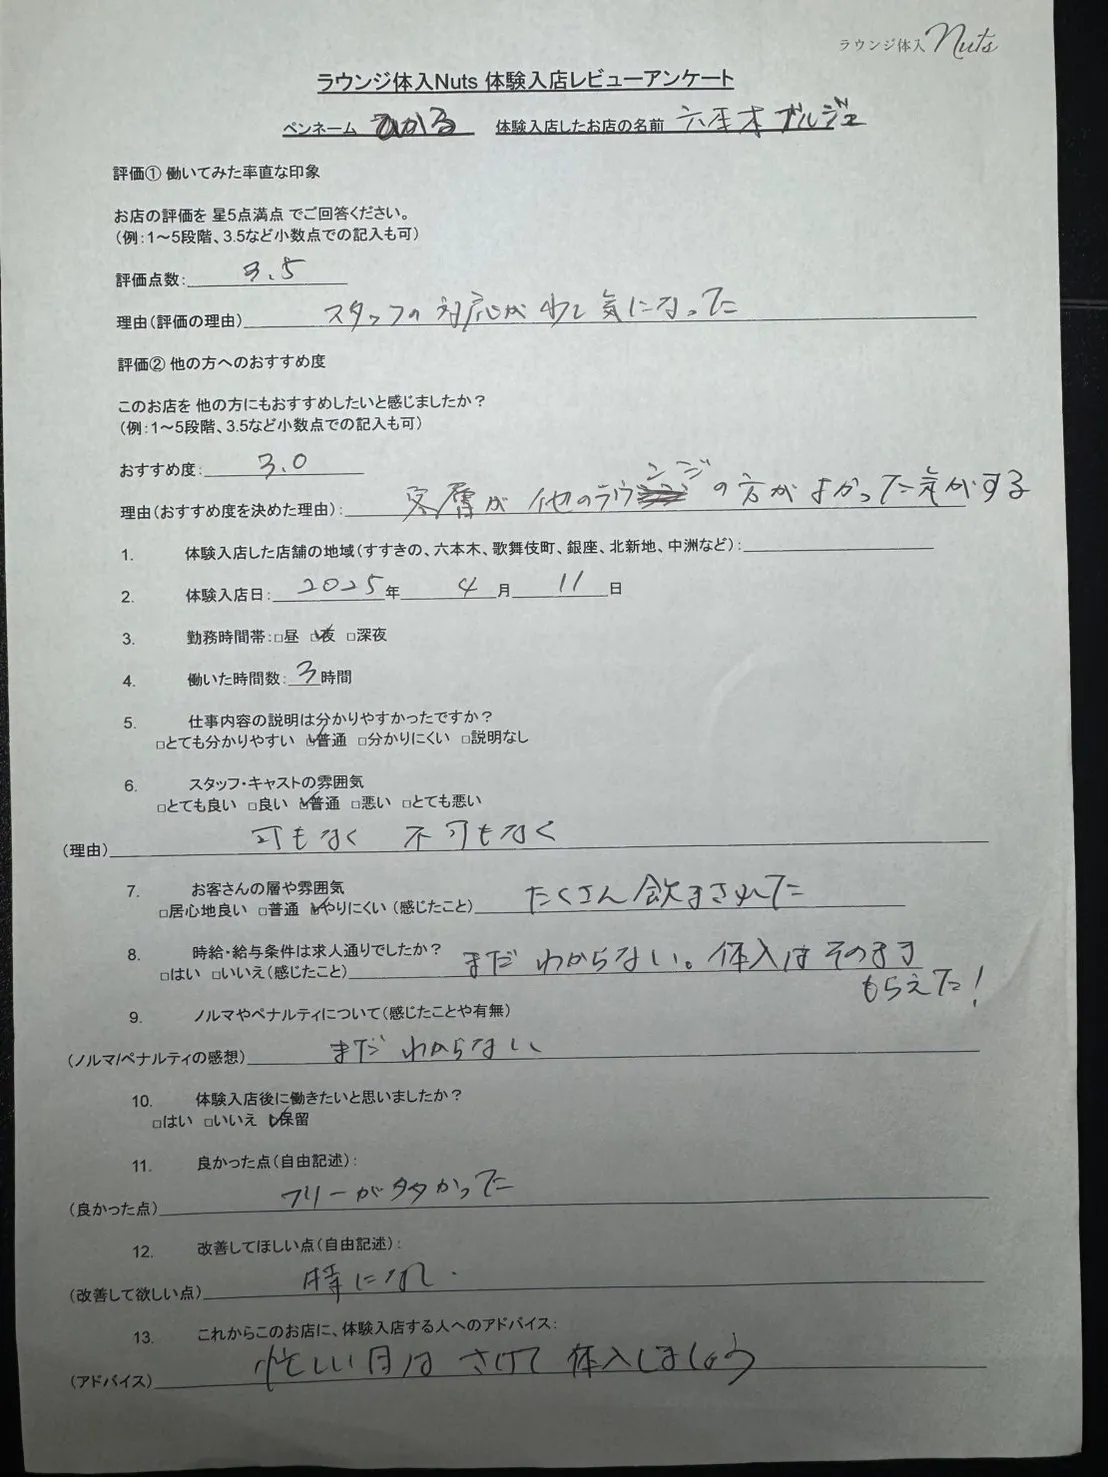 ラウンジ体入 Nuts
ラウンジ体入Nuts 体験入店レビューアンケート
ペンネーム ひかる 体験入店したお店の名前 六本木 ボルジェ
評価① 働いてみた率直な印象
お店の評価を 星5点満点 でご回答ください。
(例:1〜5段階、3.5など小数点での記入も可)
評価点数: 3.5
理由(評価の理由) スタッフの対応が 少し 気になった
評価② 他の方へのおすすめ度
このお店を 他の方にもおすすめしたいと感じましたか?
(例:1〜5段階、3.5など小数点での記入も可)
おすすめ度: 3.0
理由(おすすめ度を決めた理由): 客層が 他のラウンジの方がよかった気がする
1. 体験入店した店舗の地域(すすきの、六本木、歌舞伎町、銀座、北新地、中洲など):
2. 体験入店日: 2025年 4月 11日
3. 勤務時間帯:□昼 ☑夜 □深夜
4. 働いた時間数: 3時間
5. 仕事内容の説明は分かりやすかったですか?
□とても分かりやすい ☑普通 □分かりにくい □説明なし
6. スタッフ・キャストの雰囲気
□とても良い □良い ☑普通 □悪い □とても悪い
(理由) 可もなく 不可もなく
7. お客さんの層や雰囲気
□居心地良い □普通 ☑やりにくい (感じたこと) たくさん飲まされた
8. 時給・給与条件は求人通りでしたか?
□はい □いいえ(感じたこと) まだ わからない。体入はそのまま
もらえた!
9. ノルマやペナルティについて(感じたことや有無)
(ノルマ/ペナルティの感想) まだ わからない
10. 体験入店後に働きたいと思いましたか?
□はい □いいえ ☑保留
11. 良かった点(自由記述):
(良かった点) フリーが多かった
12. 改善してほしい点(自由記述):
(改善して欲しい点) 特になし.
13. これからこのお店に、体験入店する人へのアドバイス:
(アドバイス) 忙しい日は さけて 体入しましょう